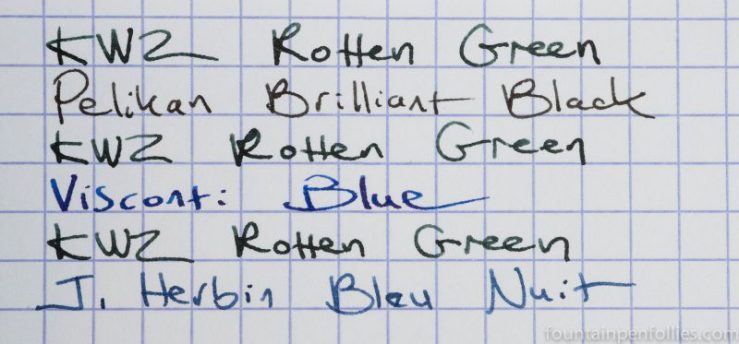 KWZ Rotten Green
Pelikan Brilliant Black
KWZ Rotten Green
Visconti Blue
KWZ Rotten Green
J. Herbin Bleu Nuit
fountainpenfollies.com